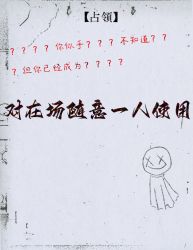 【占領】
？？？？你似乎？？？不知道？？
？但你已经成为？？？？
对在场随意一人使用